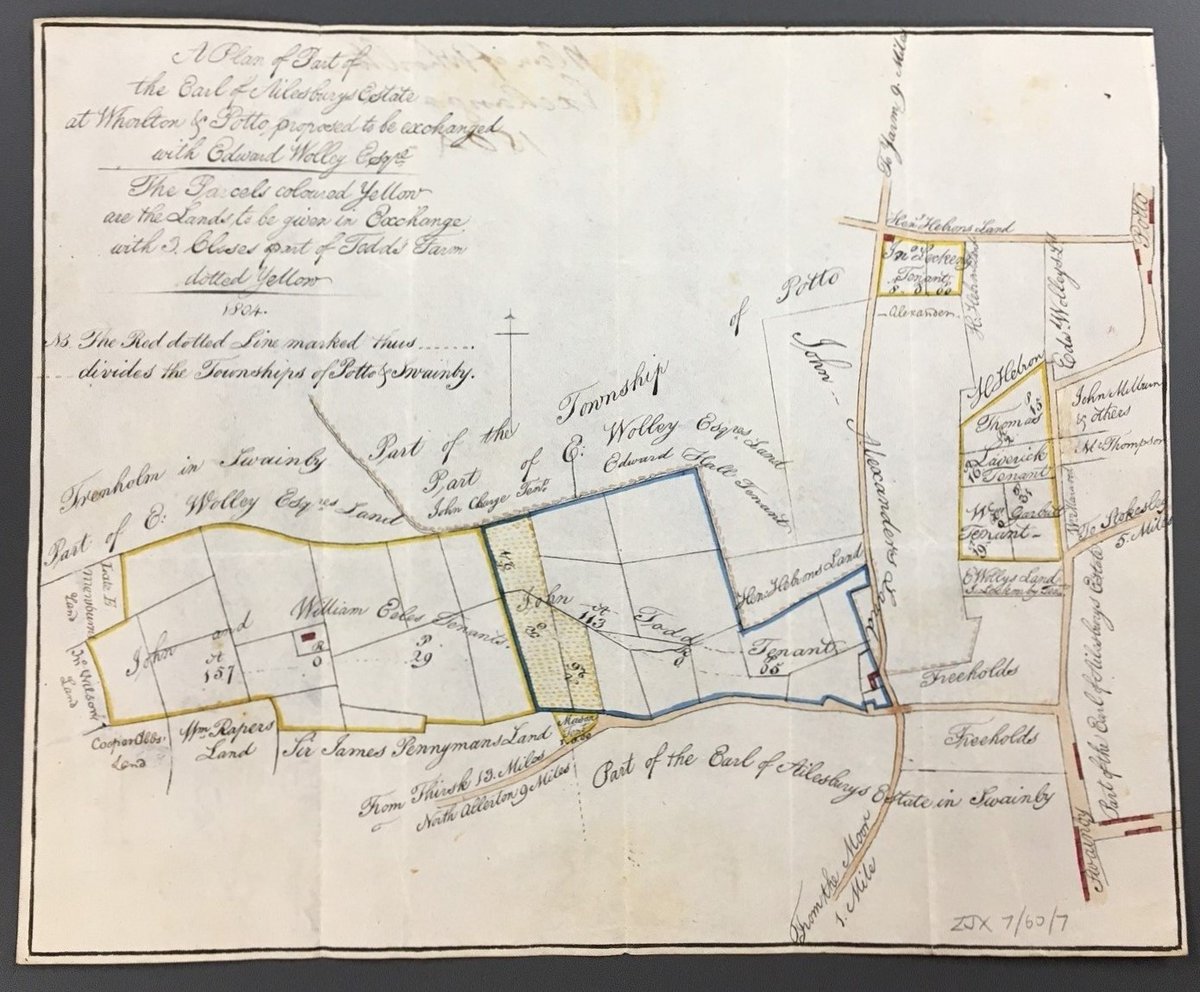 A Plan of Part of
the Earl of Ailesburys Estate
at Whorlton & Potto, proposed to be exchanged
with Edward Wolley Esqre
The Parcels coloured Yellow
are the Lands to be given in Exchange
with 3. Closes part of Todds Farm
dotted Yellow
1804.
NB The Red dotted Line marked thus ........
divides the Townships of Potto & Swainby.
To Yarm 9 Miles
Hen: Hebrons Land
Tenant
Alexander
Potto
Edwd Wolleys Ld
of Potto
John
Alexanders Land
H Hebron
Thomas
Laverick
Tenant
Wm Garbutt
Tenant
John Milburn
& others
Mr Thompson
To Stokesley
5 Miles
E Wollys Land
Freeholds
Freeholds
Part of the Township
Part of E: Wolley Esqres Land
John Charge Tent
Edward Hall Tenant
Trenholm in Swainby
Part of E: Wolley Esqres Land
Late E
Mewburn
Land
Jno Wilson
Land
Cooper Abbs.
Land
Wm Rapers
Land
Sir James Pennymans Land
John and William Eeles Tenants.
A R P
157 0 29
John Todd Tenant
A
113 0 05
Hen: Hebrons Land
From Thirsk 13. Miles
North Allerton 9 Miles
Part of the Earl of Ailesburys Estate in Swainby
Part of the Earl of Ailesburys Estate
From the Moor
1. Mile
Swainby
ZJX 7/60/7